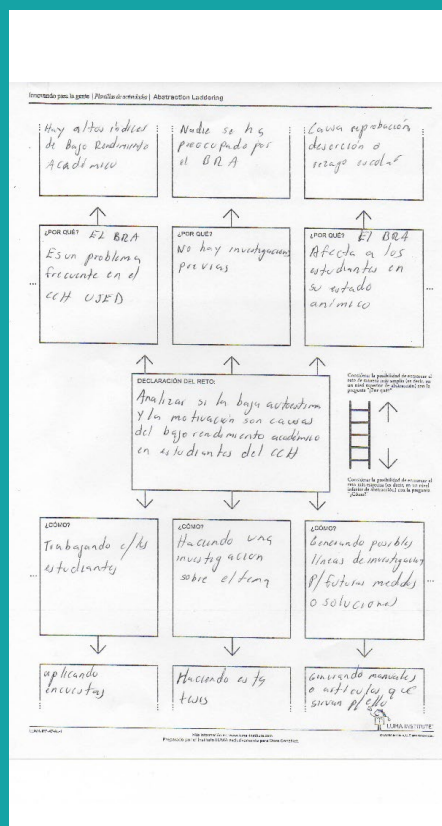 Innovando para la gente | Plantillas de actividades | Abstraction Laddering
Hay altos índices
de Bajo Rendimiento
Académico
Nadie se ha
preocupado por
el BRA
Causa reprobación
deserción o
rezago escolar
¿POR QUÉ? EL BRA
Es un problema
frecuente en el
CCH UJED
¿POR QUÉ?
No hay investigaciones
previas
¿POR QUÉ? El BRA
Afecta a los
estudiantes en
su estado
anímico
DECLARACIÓN DEL RETO:
Analizar si la baja autoestima
y la motivación son causas
del bajo rendimiento académico
en estudiantes del CCH
Considerar la posibilidad de enmarcar el
reto de manera más amplia (es decir, en
un nivel superior de abstracción) con la
pregunta "¿Por qué?"
Considerar la posibilidad de enmarcar el
¿CÓMO?
Trabajando c/los
estudiantes
¿CÓMO?
Haciendo una
investigación
sobre el tema
¿CÓMO?
Generando posibles
líneas de investigación
p/futuras medidas
o soluciones
aplicando
encuestas
Haciendo esta
tesis
Generando manuales
o artículos que
sirvan p/ello
LUMA INSTITUTE